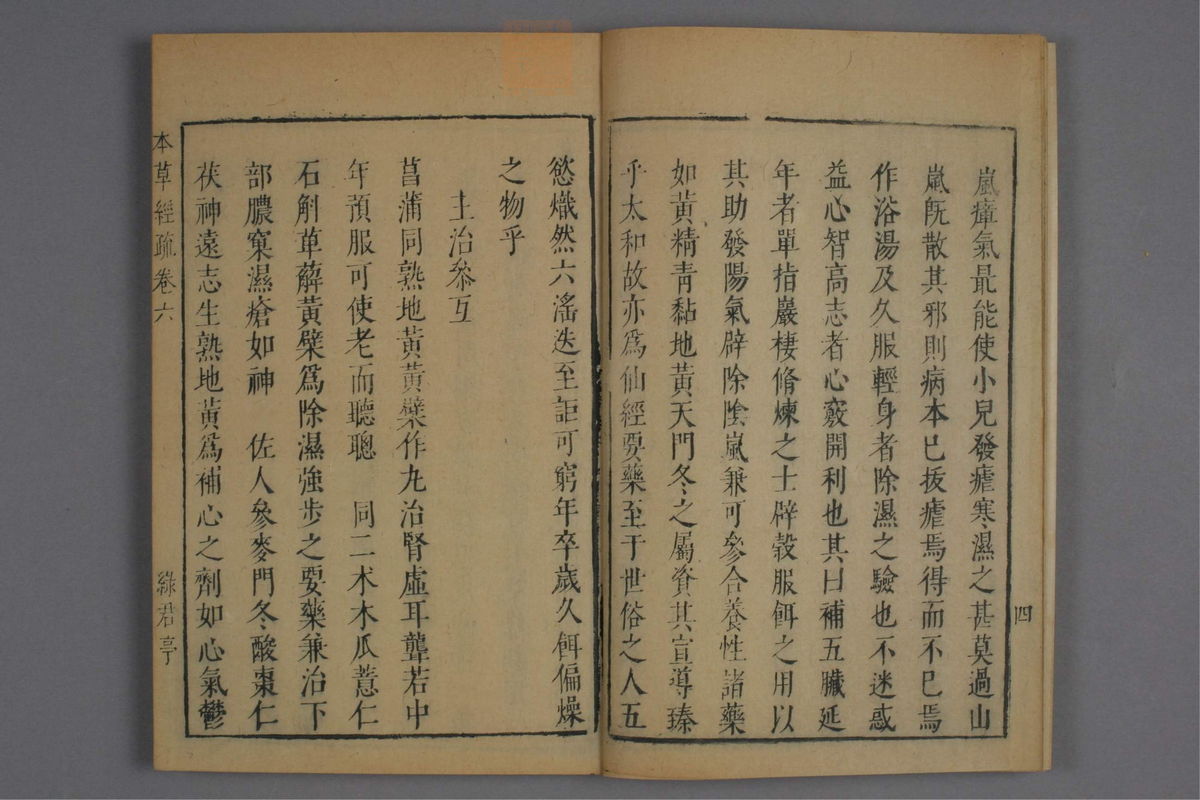 四
嵐瘴氣最能使小兒發瘧寒濕之甚莫過山
嵐旣散其邪則病本已拔瘧焉得而不已焉
作浴湯及久服輕身者除濕之驗也不迷惑
益心智高志者心竅開利也其曰補五臟延
年者單指巖棲脩煉之士辟穀服餌之用以
其助發陽氣辟除陰嵐兼可參合養性諸藥
如黃精靑黏地黃天門冬之屬資其宣導臻
乎太和故亦爲仙經要藥至于世俗之人五
慾熾然六滛迭至詎可窮年卒歲久餌偏燥
之物乎
主治叅互
菖蒲同熟地黃黃檗作丸治腎虛耳聾若中
年預服可使老而聽聰　同二朮木瓜薏仁
石斛萆薢黃檗爲除濕強步之要藥兼治下
部膿窠濕瘡如神　佐人參麥門冬酸棗仁
茯神遠志生熟地黃爲補心之劑如心氣鬱
本草經疏卷六
綠君亭